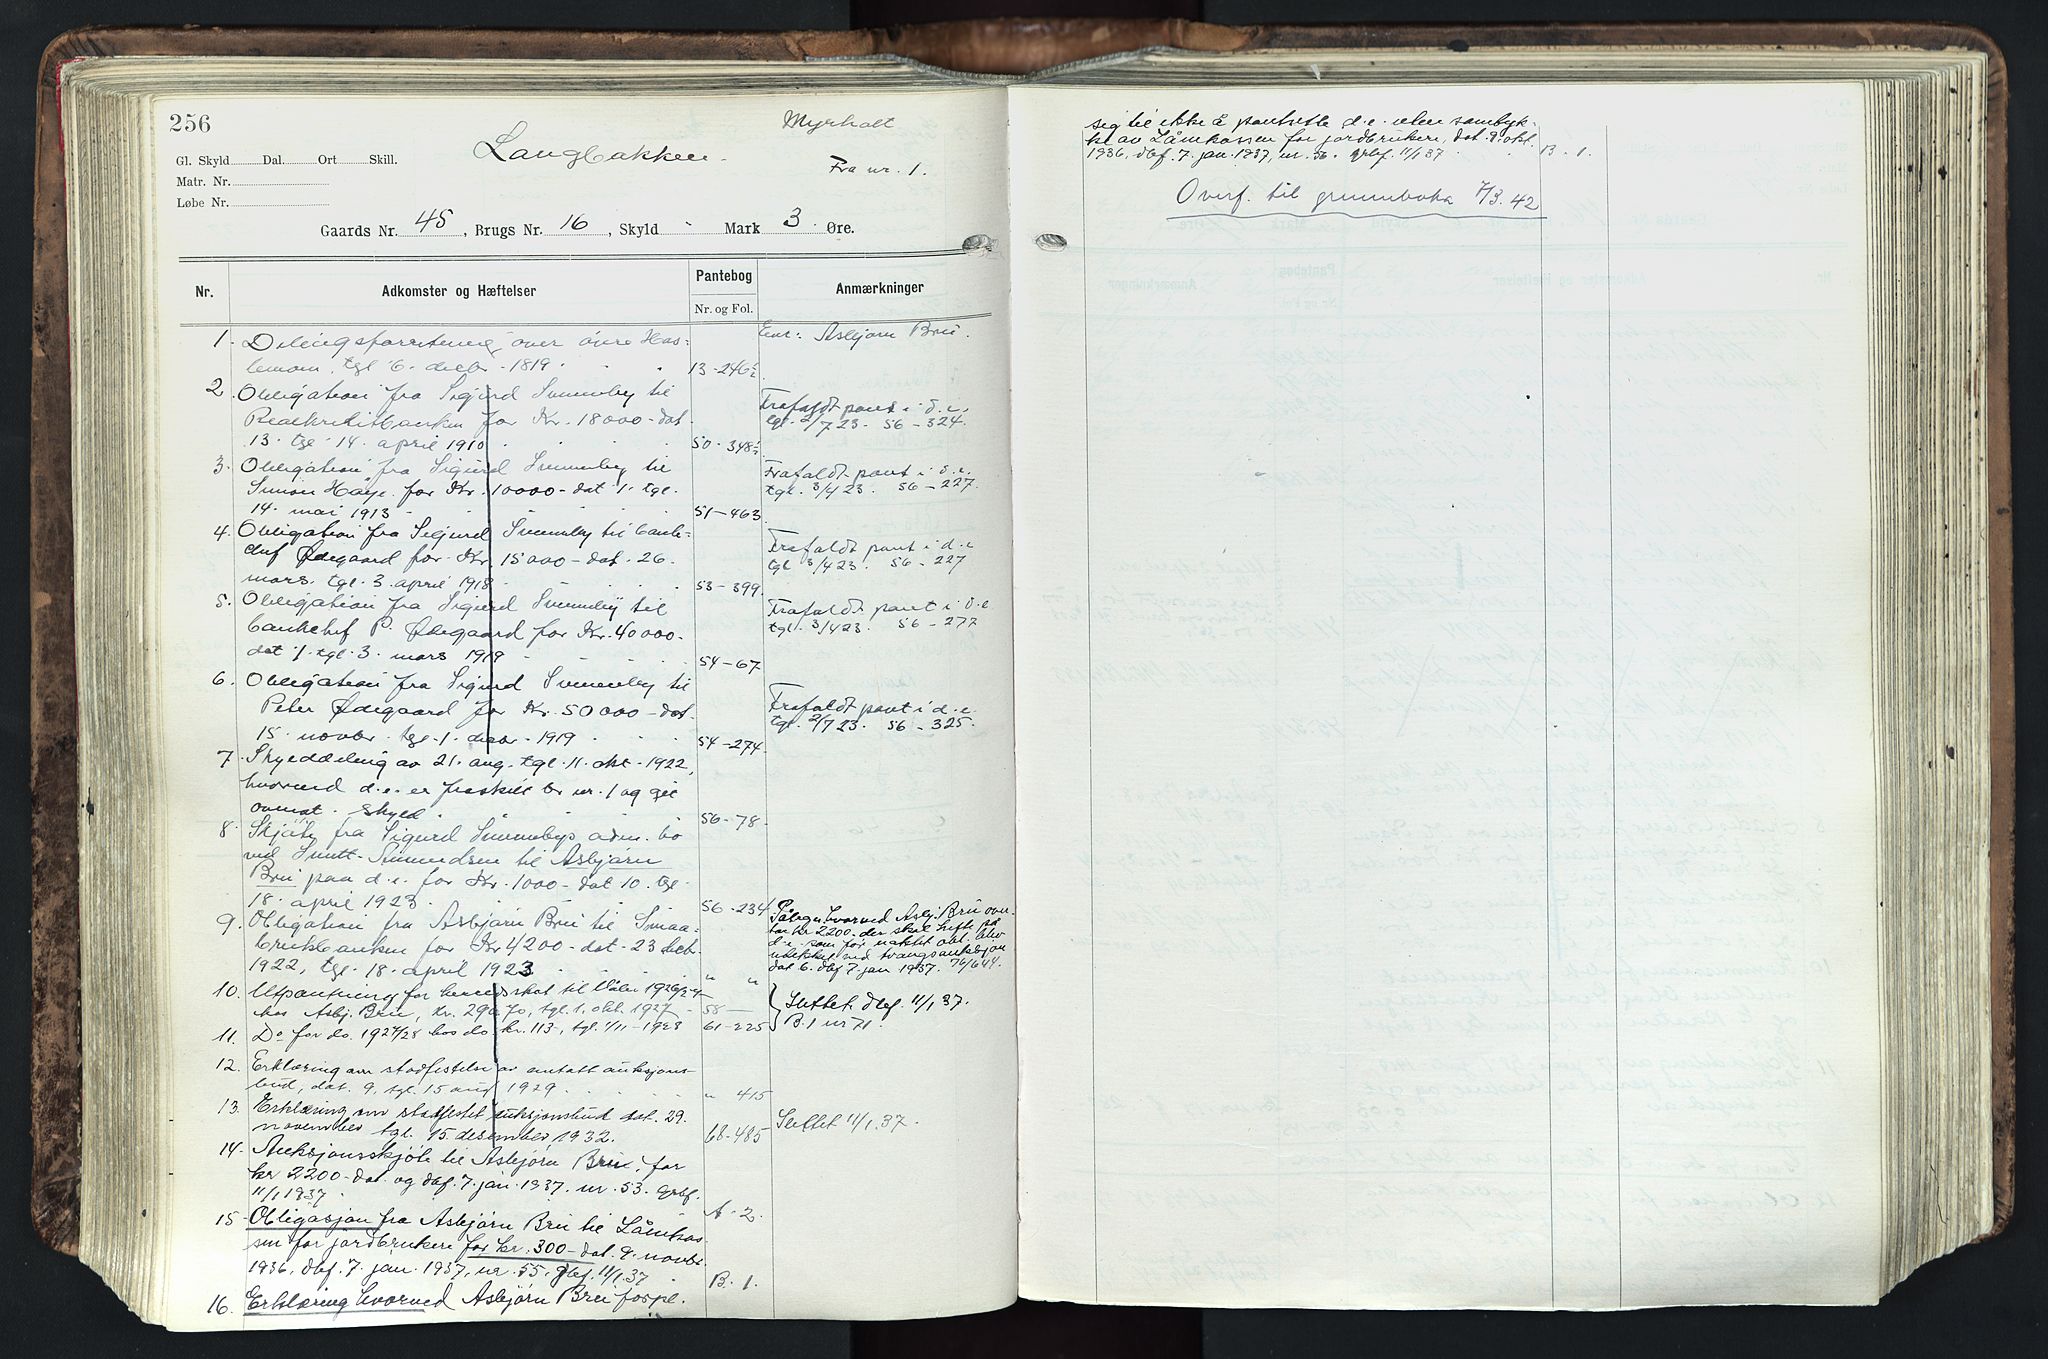 256
Myrholt
Gl. Skyld Dal. Ort Skill.
Langbakken.
Fra nr. 1.
Matr. Nr.
Løbe Nr.
Gaards Nr. 45, Brugs Nr. 16, Skyld - Mark 3 Øre.
Nr. Adkomster og Hæftelser Pantebog Nr. og Fol. Anmærkninger
1. Delingsforretning over øvre Has-
lemoen, tgl 6. decbr. 1819. 13-246
Eier: Asbjørn Bru.
2. Obligation fra Sigurd Svenneby til
Realkreditbanken for Kr. 18000- dat.
13. tgl. 14. april 1910 50-348
Frafaldt pant i d.e.
tgl. 2/7 23. 56-324.
3. Obligation fra Sigurd Svenneby til
Simon Haye for Kr. 10000- dat 1. tgl.
14. mai 1913 51-463
Frafaldt pant i d.e.
tgl. 3/4 23. 56-227.
4. Obligation fra Sigurd Svenneby til bank-
chef Ødegaard for Kr. 15000- dat. 26.
mars. tgl. 3. april 1918 53-399
Frafaldt pant i d.e
tgl 3/4 23. 56-227
5. Obligation fra Sigurd Svenneby til
bankchef P. Ødegaard for Kr. 40000.
dat 1. tgl. 3. mars 1919 54-67
Frafaldt pant i d.e
tgl. 3/4 23. 56-277
6. Obligation fra Sigurd Svenneby til
Peter Ødegaard for Kr. 50000- dat.
15. novbr. tgl. 1. decbr. 1919 54-274
Frafaldt pant i d.e.
tgl. 2/7 23. 56-325.
7. Skylddeling av 21. aug. tgl. 11. okt. 1922,
hvorved d.e. er fraskilt br nr. 1 og git
ovennt. skyld 56-78
8. Skjøte fra Sigurd Svennebys adm. bo
ved Amundsen til Asbjørn
Bru paa d.e. for Kr. 1000- dat 10. tgl.
18. april 1923 56-234
9. Obligation fra Asbjørn Bru til Smaa-
brukbanken for Kr 4200- dat. 23 decb.
1922, tgl. 18. april 1923 " "
Påtegn. hvorved Asbj. Bru over-
tar kr 2200- der skal hefte på
d.e. som før nævntet obl. blev
udekket ved tvangsauksjon
dat 6. dbf 7. jan 1937.
10. Utpantning for herredsskat til Våler 1926/27
hos Asbj. Bru, kr. 296,70, tgl. 1. okt. 1927 58-
11. Do for do. 1927/28 hos do. kr. 113-, tgl. 1/11-1928 61-225
Slettet dbf. 11/1 37.
B. 1 nr 71.
12. Erklæring om stadfestelse av antatt auksjons-
bud, dat. 9. tgl. 15 aug 1929 " 415
13. Erklæring om stadfestet auksjonsbud dat. 29.
november tgl. 15. desember 1932. 68-485
Slettet 11/1. 37.
14. Auksjonsskjøte til Asbjørn Bru, for
kr 2200- dat. og dbf. 7. jan. 1937. nr. 53. grbf.
11/1 1937 A-2.
15. Obligasjon fra Asbjørn Bru til Lånekas-
sen for jordbrukere for kr. 300- dat. 9. novbr.
1936, dbf. 7. jan. 1937, nr. 55, gbf. 11/1.37 B. 1.
16. Erklæring hvorved Asbjørn Bru forpl.
sig til ikke å pantsette d.e. uten samtyk-
ke av Lånekassen for jordbrukere, dat. 9. okt.
1936, dbf. 7. jan. 1937, nr. 56. grbf. 11/1 37 B. 1.
Overf. til grunnboka 7/3. 42